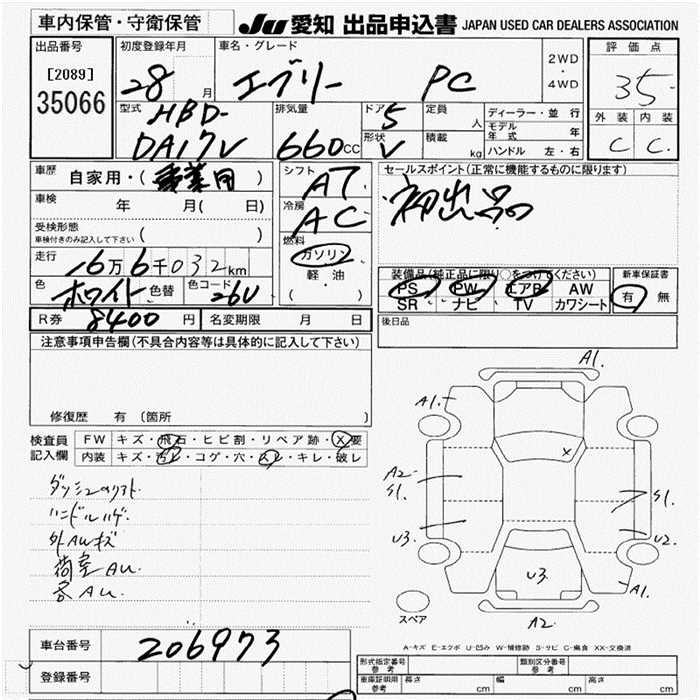 車内保管・守衛保管
JU 愛知 出品申込書 JAPAN USED CAR DEALERS ASSOCIATION
出品番号
[2089]
35066
初度登録年月
28 月
車名・グレード
エブリー PC
2WD
・
4WD
評価点
35
外装 内装
C C
型式
HBD-
DA17V
排気量
660cc
ドア
5
形状
V
定員
人
積載
kg
ディーラー・並行
モデル年式 年
ハンドル 左・右
車歴
自家用・( )
車検
年 月( 日)
受検形態
車検付きのみ記入して下さい ( )
走行
16万6千032km
色
ホワイト
色替
色コード
26U
シフト
AT
冷房
AC
燃料
ガソリン
軽・油
( )
セールスポイント(正常に機能するものに限ります)
初出品の
装備品(純正品に限り○をつけてください)
PS PW エアB AW
SR ナビ TV カワシート
新車保証書
有 無
R券 8400 円
名変期限 月 日
後日品
注意事項申告欄(不具合内容等は具体的に記入して下さい)
修復歴 有 〔箇所 〕
検査員
記入欄
FW キズ・飛石・ヒビ割・リペア跡・X要
内装 キズ・汚レ・コゲ・穴・スレ・キレ・破レ
ハンドルハゲ
外AUキズ
荷室AU
各AU
A1.
A1.
X
A2
S1.
S1.
U3
U2
U3
A1.
A2
スペア
A-キズ E-エクボ U-凹み W-補修跡 S-サビ C-腐食 XX-交換済
車台番号
206973
登録番号
形式指定番号
参考
類別区分番号
参考
車庫証明用
参考
長さ cm
幅 cm
高さ cm